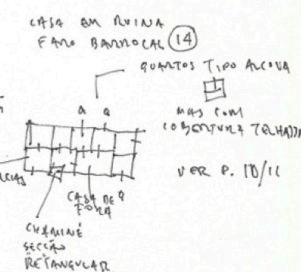 CASA EM RUINA
FARO BARROCAL 14
QUARTOS TIPO ALCOVA
MAS COM
COBERTURA TELHADO
VER P. 10/11
Q Q
CASA DE
FORA
CHAMINÉ
SECÇÃO
RETANGULAR